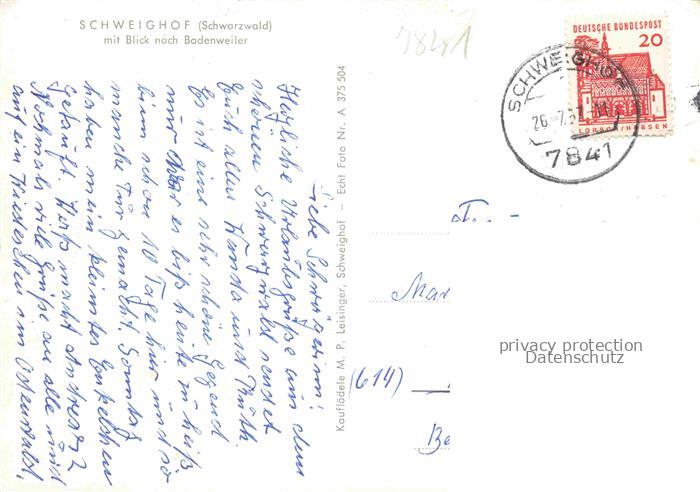 SCHWEIGHOF (Schwarzwald)
mit Blick nach Badenweiler
7841
DEUTSCHE BUNDESPOST
20
LORSCH/HESSEN
SCHWEIGHOF
7841
Kauflädele M. P. Leisinger, Schweighof – Echt Foto Nr. A 375 504
Liebe Schwägerin!
Herzliche Urlaubsgrüße aus dem
schönen Schwarzwald sendet
Euch allen und
Es ist eine sehr schöne Gegend
nur war es bis heute zu heiß
bin schon 10 Tage hier und so
manche Tur gemacht. Sonntag
haben mein kleinstes Enkelchen
getauft. macht
Nochmals viele Grüße an alle und
auf ein im
(614)
privacy protection
Datenschutz